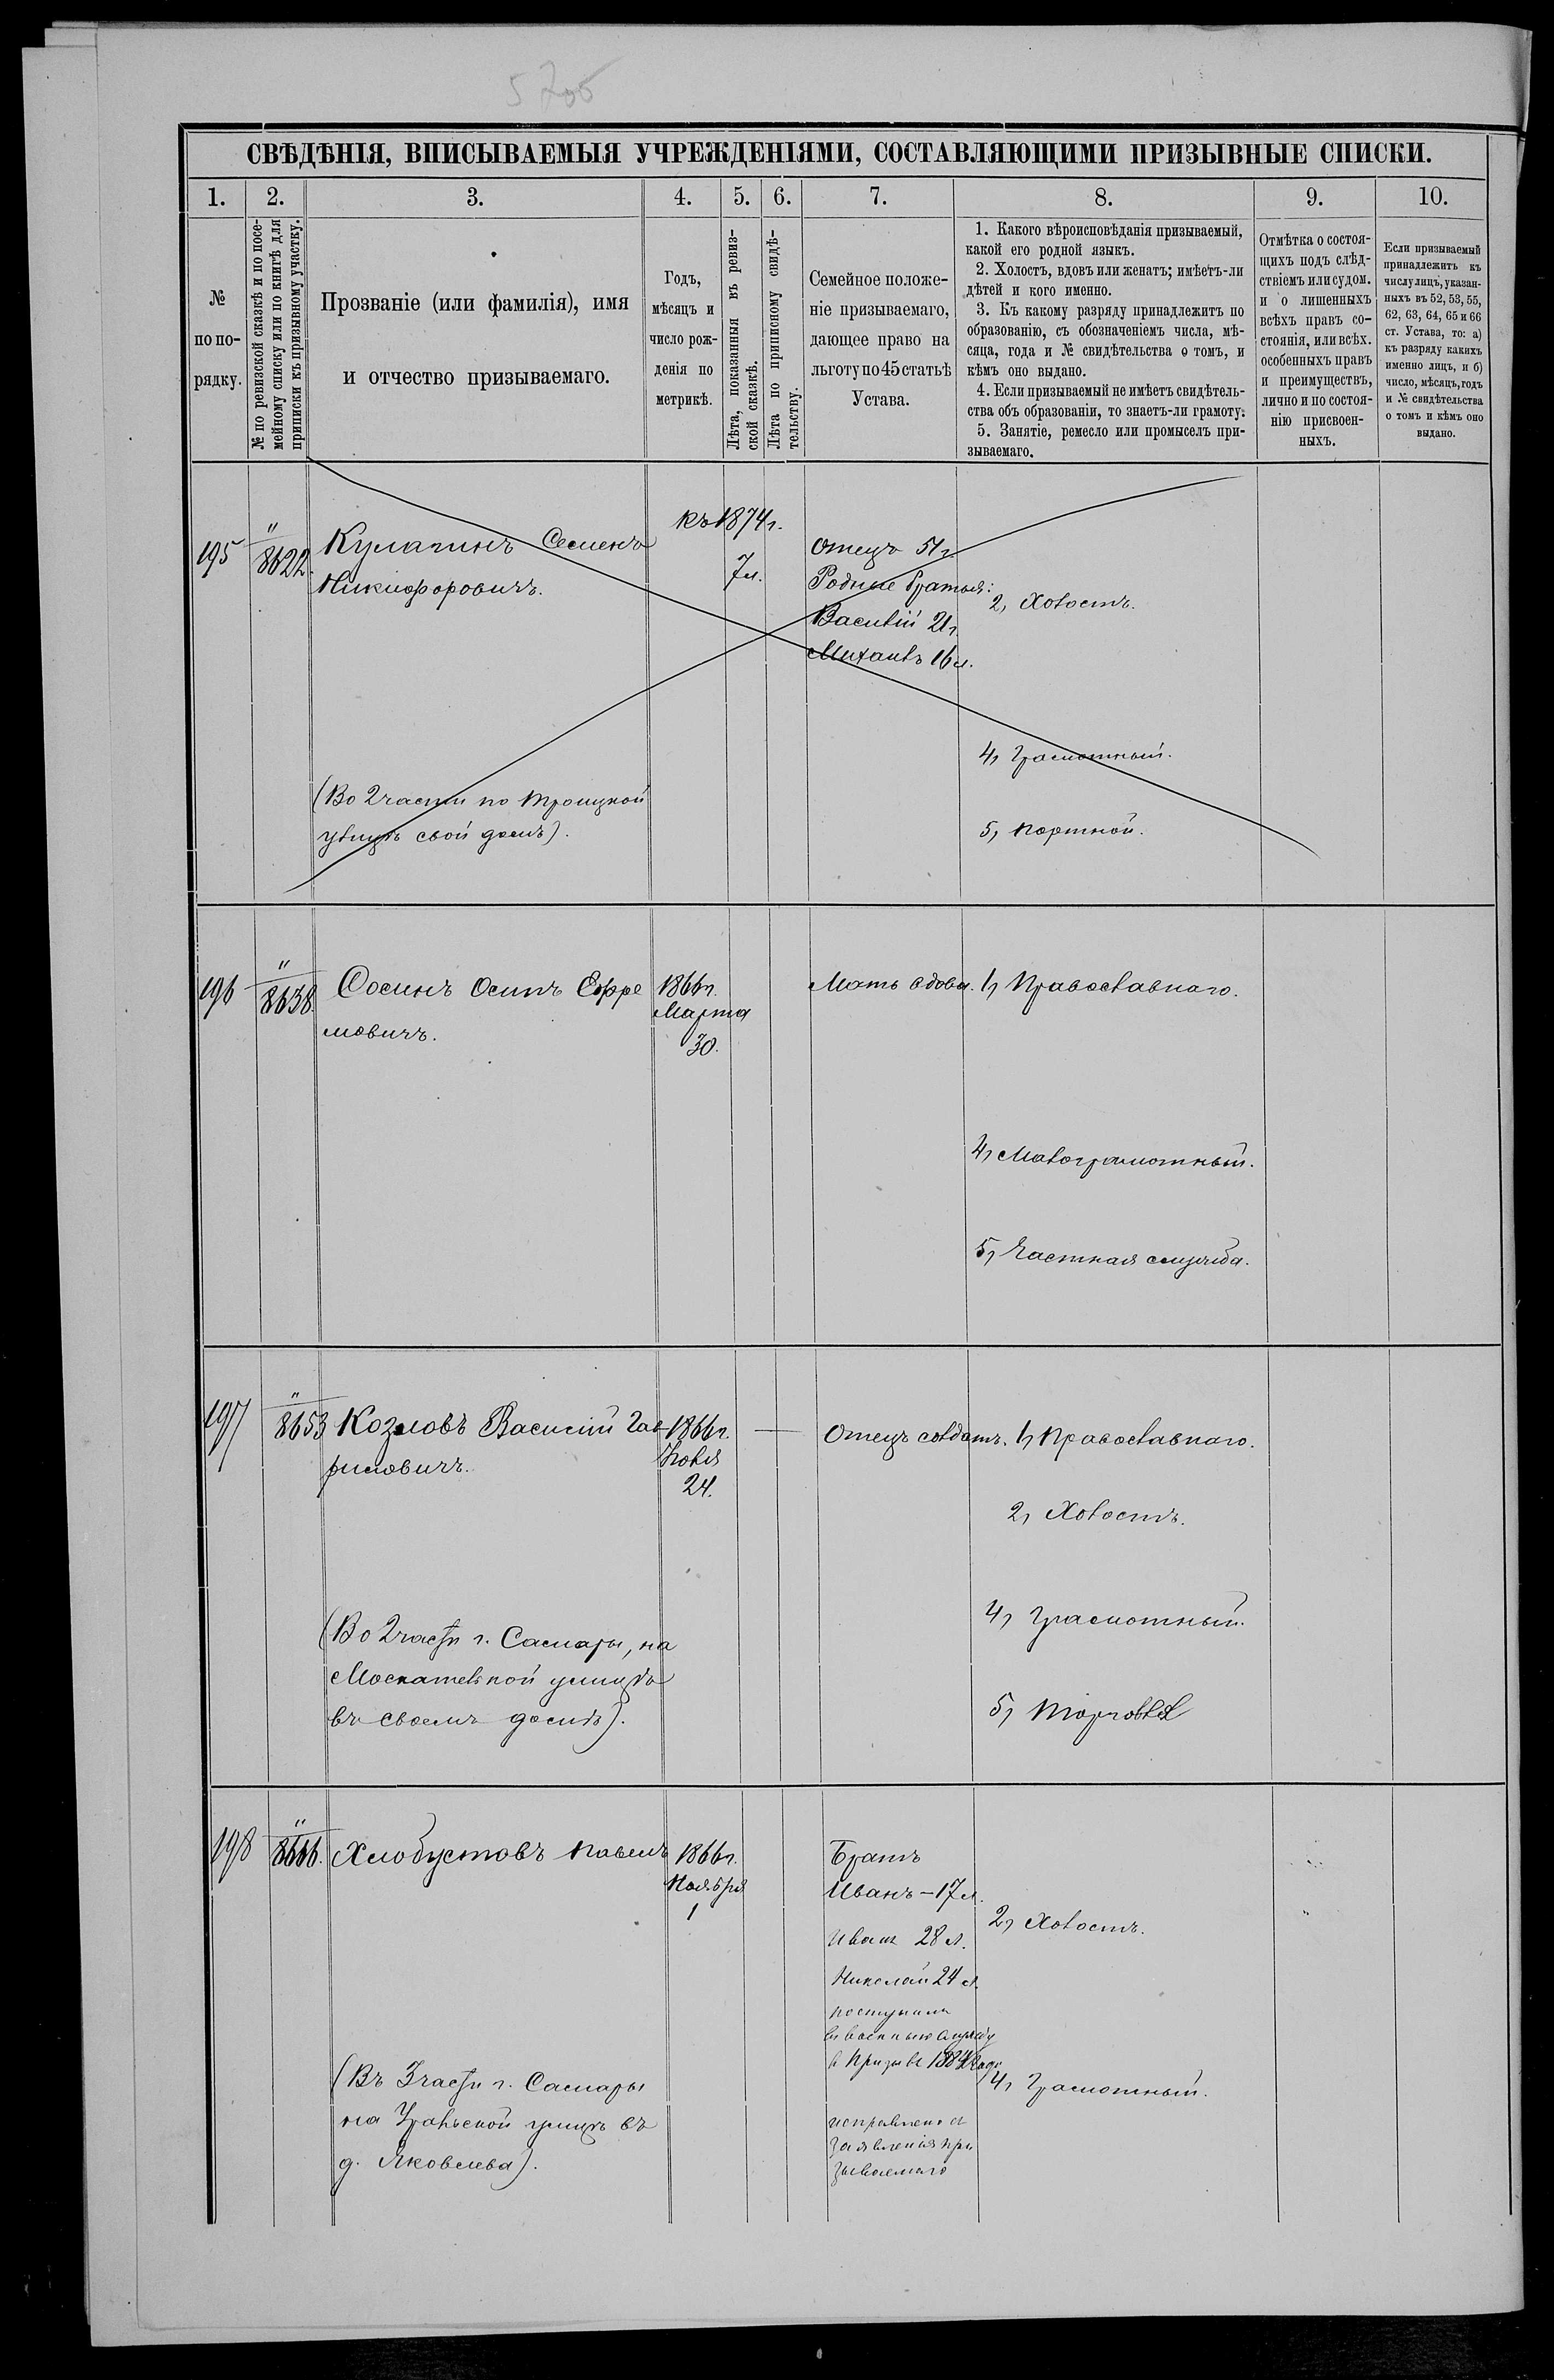 5700
СВѢДѢНІЯ, ВПИСЫВАЕМЫЯ УЧРЕЖДЕНІЯМИ, СОСТАВЛЯЮЩИМИ ПРИЗЫВНЫЕ СПИСКИ.
1. 2. 3. 4. 5. 6. 7. 8. 9. 10.
№
по по-
рядку.
№ по ревизской сказкѣ и по посе-
мейному списку или по книгѣ для
приписки къ призывному участку.
Прозваніе (или фамилія), имя
и отчество призываемаго.
Годъ,
мѣсяцъ и
число рож-
денія по
метрикѣ.
Лѣта, показанныя въ ревиз-
ской сказкѣ.
Лѣта по приписному свидѣ-
тельству.
Семейное положе-
ніе призываемаго,
дающее право на
льготу по 45 статьѣ
Устава.
1. Какого вѣроисповѣданія призываемый,
какой его родной языкъ.
2. Холостъ, вдовъ или женатъ; имѣетъ-ли
дѣтей и кого именно.
3. Къ какому разряду принадлежитъ по
образованію, съ обозначеніемъ числа, мѣ-
сяца, года и № свидѣтельства о томъ, и
кѣмъ оно выдано.
4. Если призываемый не имѣетъ свидѣтель-
ства объ образованіи, то знаетъ-ли грамоту.
5. Занятіе, ремесло или промыселъ при-
зываемаго.
Отмѣтка о состоя-
щихъ подъ слѣд-
ствіемъ или судом.
и о лишенныхъ
всѣхъ правъ со-
стоянія, или всѣх.
особенныхъ правъ
и преимуществъ,
лично и по состоя-
нію присвоен-
ныхъ.
Если призываемый
принадлежитъ къ
числу лицъ, указан-
ныхъ въ 52, 53, 55,
62, 63, 64, 65 и 66
ст. Устава, то: а)
къ разряду какихъ
именно лицъ, и б)
число, мѣсяцъ, годъ
и № свидѣтельства
о томъ и кѣмъ оно
выдано.
195
"
8622.
Кулагинъ Семенъ
Никифоровичъ.
(Во 2 части по Троицкой
улицѣ свой домъ).
къ 1874 г.
7 л.
Отецъ 51 г.
Родные братья:
Василій 21 г.
Михаилъ 16 л.
2, Холостъ.
4, Грамотный.
5, Портной.
196
"
8638.
Сосинъ Осипъ Ефре
мовичъ.
1866 г.
Марта
30.
Мать вдова.
1, Православнаго.
4, Малограмотный.
5, Частная служба.
197
"
8653
Козловъ Василій Гав-
риловичъ.
(Во 2 части г. Самары, на
Москательной улицѣ
въ своемъ домѣ).
1866 г.
Іюля
24.
—
Отецъ солдатъ.
1, Православнаго.
2, Холостъ.
4, Грамотный.
5, Торговля
198
"
8666.
Хлобустовъ Павелъ
(Въ 3 части г. Самары
на Уральской улицѣ въ
д. Яковлева).
1866 г.
Ноября
1
Братъ
Иванъ – 17 л.
Иванъ 28 л.
Николай 24 л.
поступили
въ военную службу
в призывѣ 1884 года
исправлено съ
заявленія при
зываемаго
2, Холостъ.
4, Грамотный.